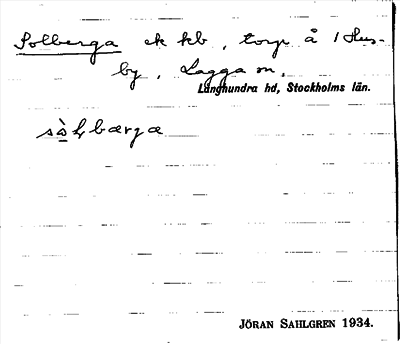 Solberga ek kb, torp å 1 Hus-
by, Lagga sn,
Långhundra hd, Stockholms län.
JÖRAN SAHLGREN 1934.